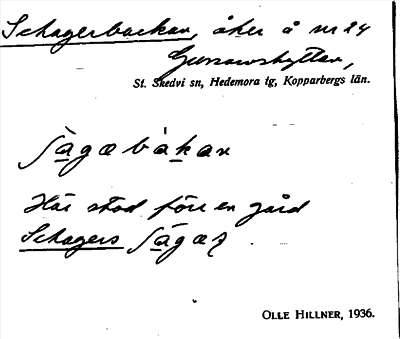 Schagerbackan, åker å nr 24
Gunnarshyttan,
St. Skedvi sn, Hedemora tg, Kopparbergs län.
ʃàgæbàkan
Här stod förr en gård
Schagers ʃàgæʒ
OLLE HILLNER, 1936.